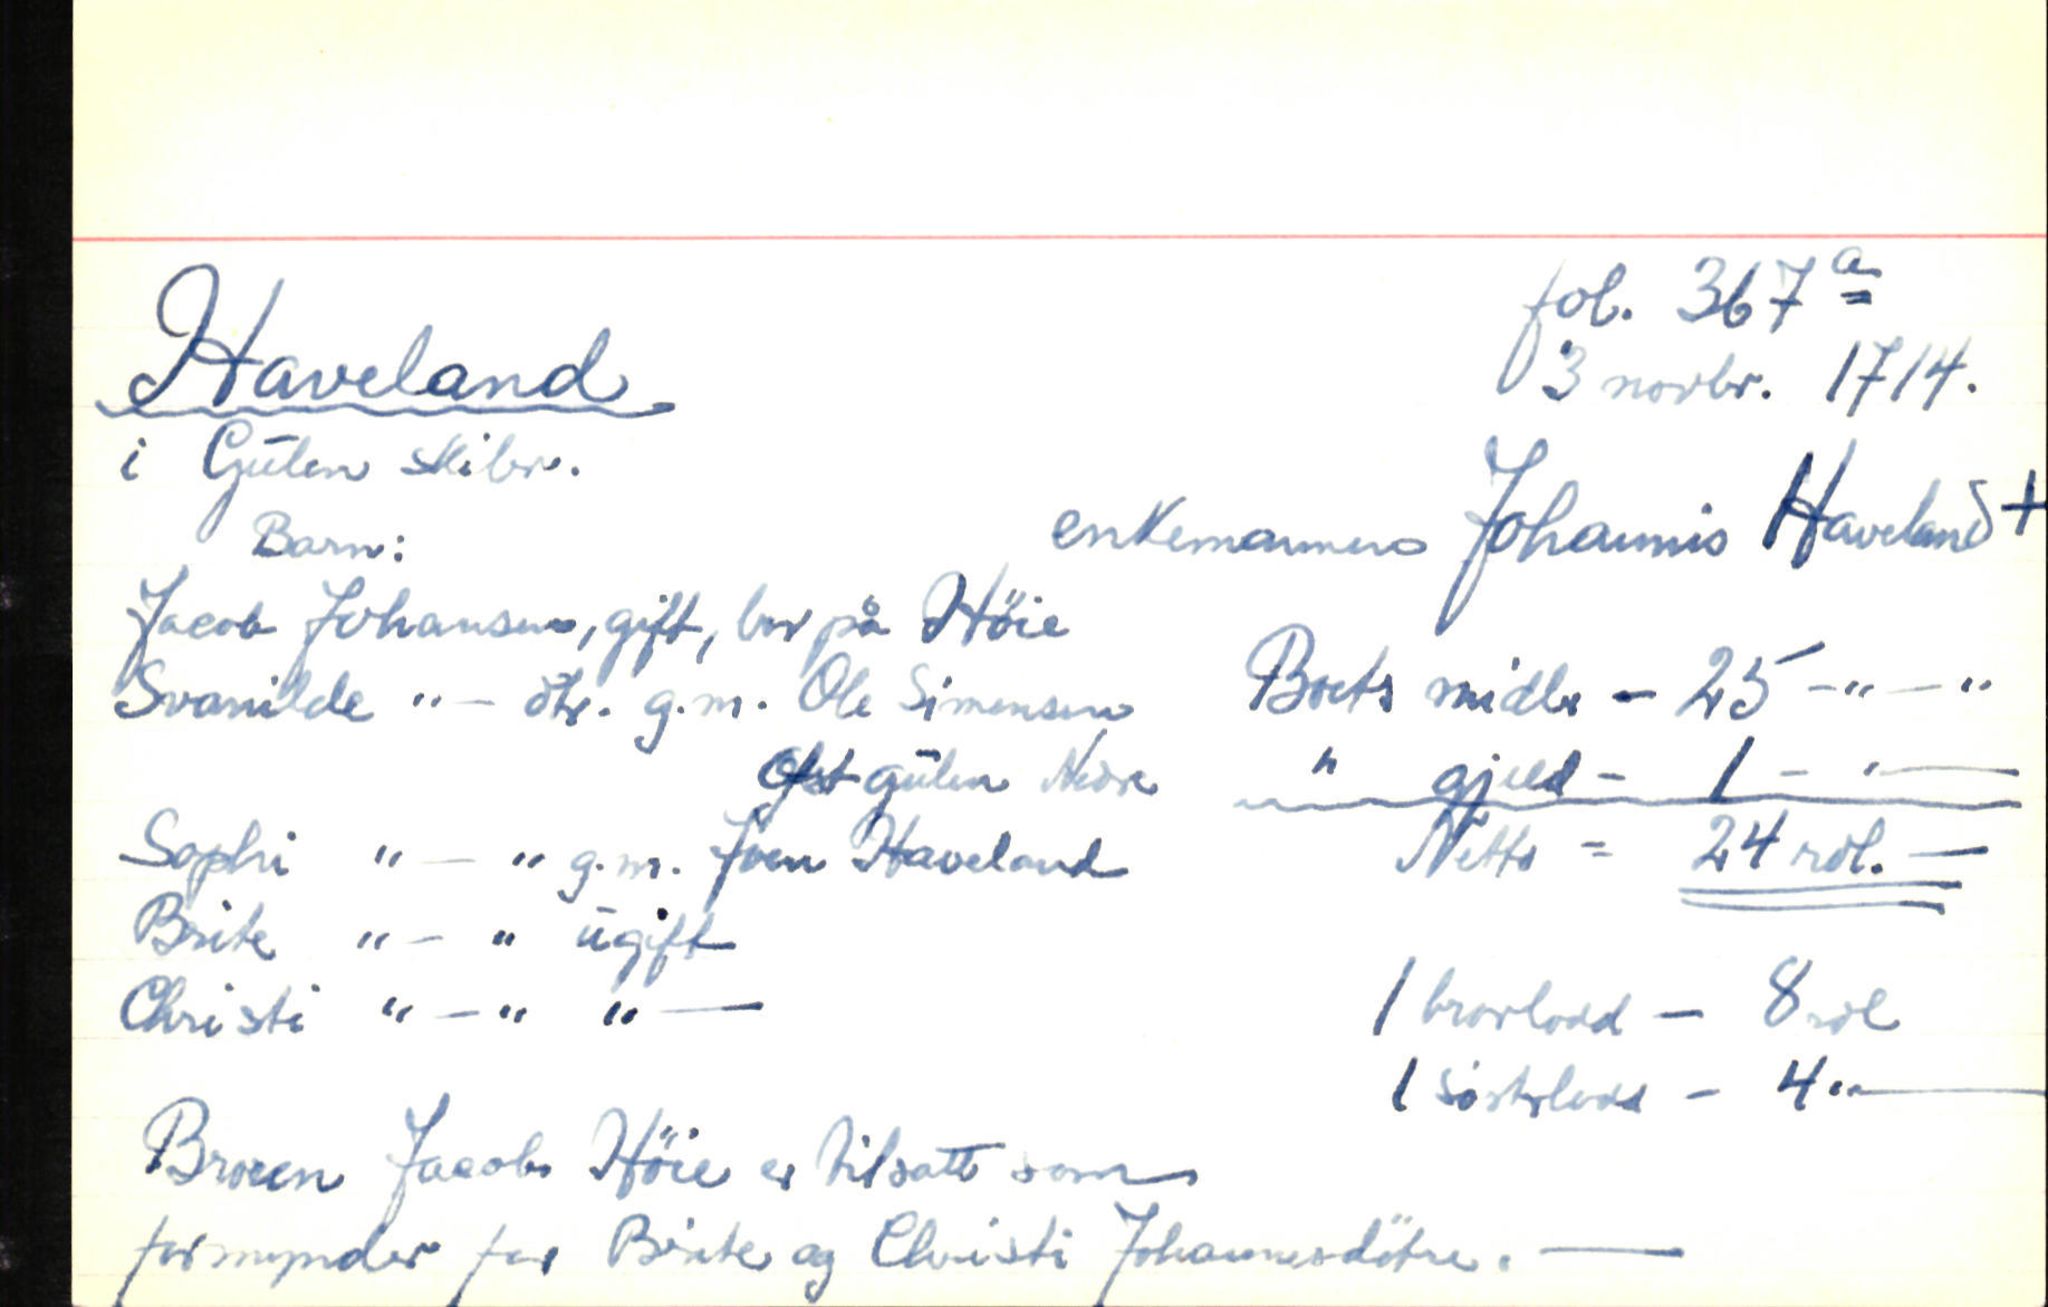 fol. 367a
Haveland
3 novbr. 1714.
i Gülen skibr.
enkemannen Johannis Haveland +
Barn:
Jacob Johansen, gift, bor på Höie
Svanilde " — dtr. g.m. Ole Simensen
Boets midler — 25 — " — "
Ost gülen Nedre
" gjeld — 1 — " —
Sophi " — " g.m. Joen Haveland
Netto = 24 rdl. —
Brite " — " ügift
Christi " — " " —
1 brorlodd — 8 rdl
1 søsterlodd — 4 " —
Broren Jacob Höie er tilsatt som
formynder for Brite og Christi Johannesdötre. —